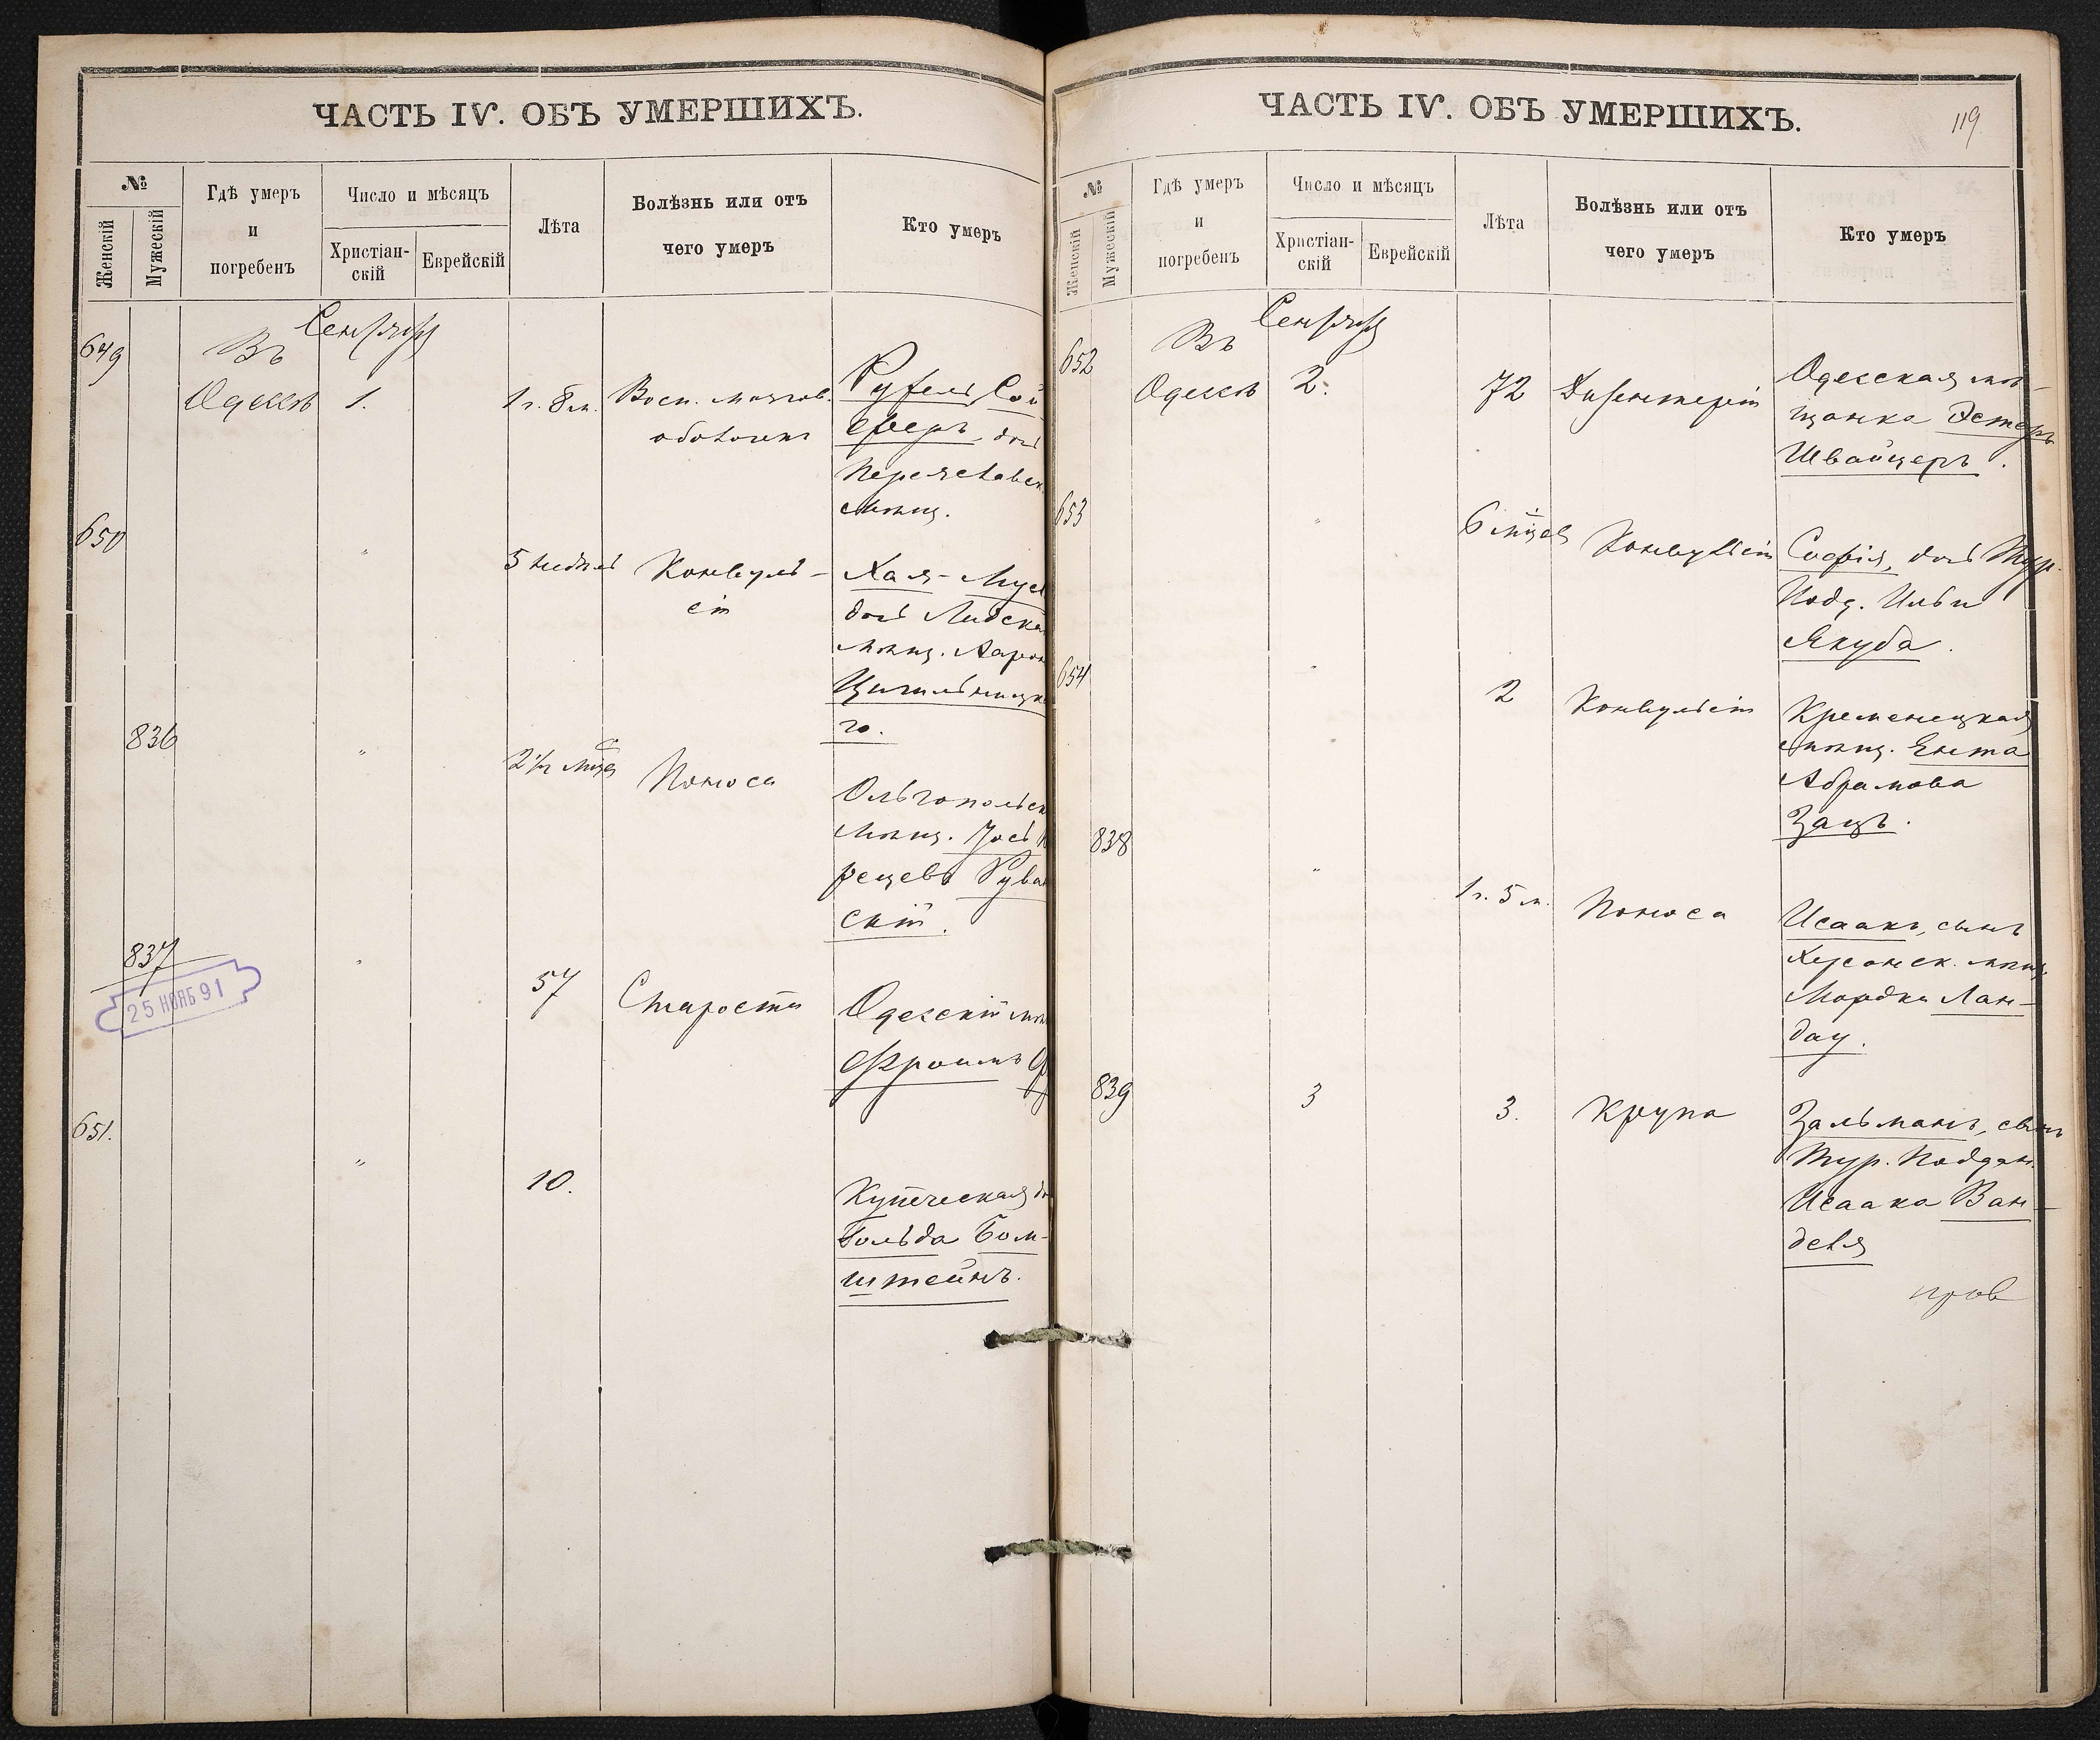 ЧАСТЬ IV. ОБЪ УМЕРШИХЪ.
№
Женскій
Мужескій
Гдѣ умеръ
и
погребенъ
Число и мѣсяцъ
Христіан-
скій
Еврейскій
Лѣта
Болѣзнь или отъ
чего умеръ
Кто умеръ
Сентября
649
Въ
Одессѣ
1.
1 г. 8 м.
Восп. мозгов.
оболочекъ
Руфель Сой
ферь, дочь
Переяславск.
мѣщ.
650
"
5 недѣль
Конвуль-
сіи
Хая-
дочь Лидска
мѣщ. Аарон
Цигильницка
го.
836
"
2½ мѣся
Поноса
Ольгопольск
мѣщ. Іось
Рува
скій.
837
25 НОЯБ 91
"
57
Старости
Одесскій мѣщ
Фроимъ
651.
"
10.
Купеческая до
Гольда Бом-
штейнъ.
ЧАСТЬ IV. ОБЪ УМЕРШИХЪ.
119
№
Женскій
Мужескій
Гдѣ умеръ
и
погребенъ
Число и мѣсяцъ
Христіан-
скій
Еврейскій
Лѣта
Болѣзнь или отъ
чего умеръ
Кто умеръ
Сентября
652
Въ
Одессѣ
2.
72
Дизентеріи
Одесская мѣ-
щанка Эстеръ
Швайцеръ.
653
"
6 мѣсяцевъ
Конвульсіи
Софія, дочь Тур.
Подд. Ильи
Якуба.
654
"
2
Конвульсіи
Кременецкая
мѣщ. Ента
Абрамова
Зацъ.
838
"
1 г. 5 м.
Поноса
Исаакъ, сынъ
Херсонск. мѣщ.
Мордки Лан-
дау.
839
3
3.
Крупа
Зальманъ, сынъ
Тур. Поддан.
Исаака Ван-
деля